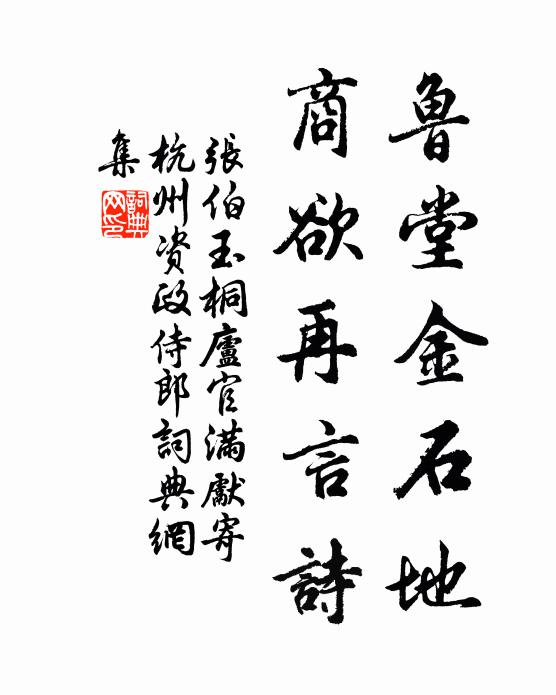 魯堂金石地
商欲再言詩
張伯玉桐廬官滿獻寄
杭州資政侍郎詞典網
集
詞典網印